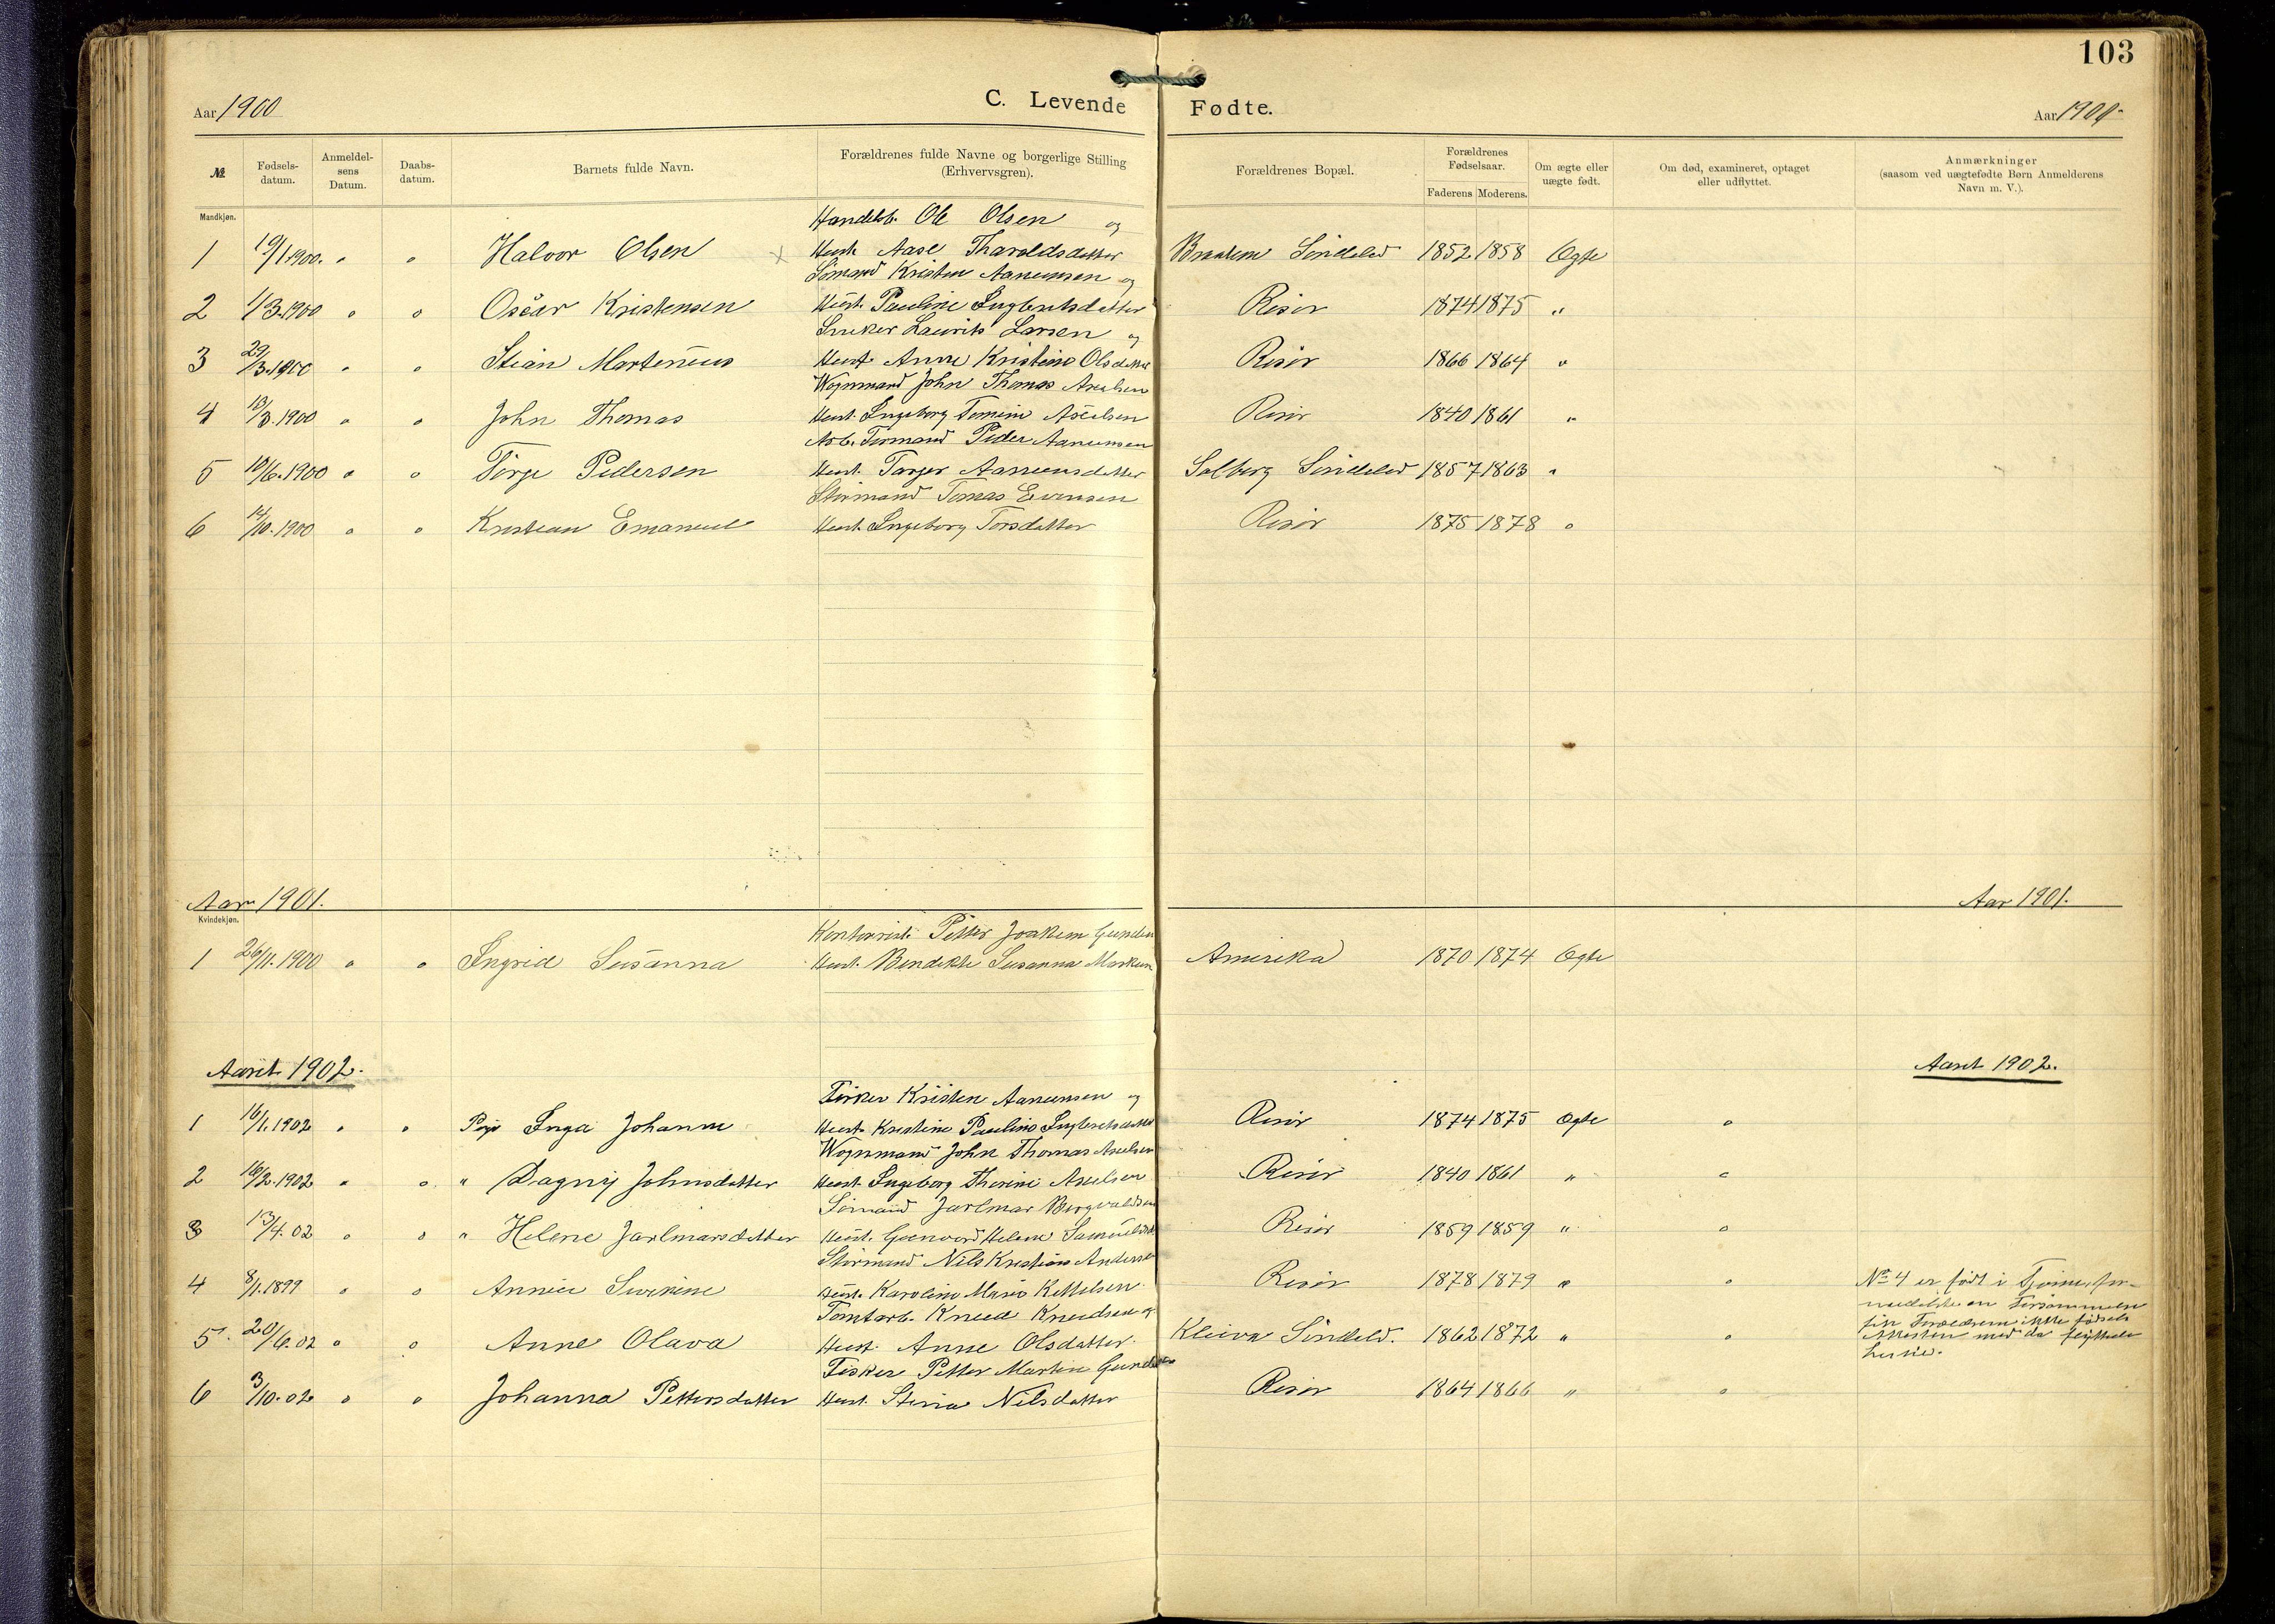 103
Aar 1900 C. Levende Fødte. Aar 1900
№ Fødsels-datum. Anmeldel-sens Datum. Daabs-datum. Barnets fulde Navn. Forældrenes fulde Navne og borgerlige Stilling (Erhvervsgren). Forældrenes Bopæl. Forældrenes Fødselsaar. Faderens Moderens. Om ægte eller uægte født. Om død, examineret, optaget eller udflyttet. Anmærkninger (saasom ved uægtefødte Børn Anmelderens Navn m. V.).
Mandkjøn.
Handelsb. Ole Olsen og
1 19/1.1900. " " Halvor Olsen Hust. Aase Tharaldsdatter Søndeled 1852 1858 Ægte
Sømand Kristen Aanensen og
2 1/3.1900 " " Oscar Kristensen Hust. Pauline Inglretsdatter Risør 1874 1875 "
Sneker Laurits Larsen og
3 29/3.1900 " " Stian Martenius Hust. Anne Kristine Olsdatter Risør 1866 1864 "
Wognmand John Thomas Axelsen
4 13/3.1900 " " John Thomas Hust. Ingeborg Tomine Axelsen Risør 1840 1861 "
Arb. Pider Aanensen
5 10/6.1900 " " Pedersen Hust. Aanensdatter Solberg Søndeled 1857 1863 "
Stürmand Tomas Evensen
6 14/10.1900 " " Kristian Emanuel Hust. Ingeborg Torsdatter Risør 1875 1878 "
Aar 1901. Aar 1901.
Kvindekjøn.
Kontorist Petter Joakim
1 26/11.1900 " " Ingrid Susanna Hust. Bendikte Susanna Amerika 1870 1874 Ægte
Aaret 1902. Aaret 1902.
Fisker Kristen Aanensen og
1 16/1.1902 " " Pige Inga Johanne Hust. Kristine Pauline Risør 1874 1875 Ægte "
Wognmand John Thomas Axelsen
2 16/2.1902 " " " Dagny Johnsdatter Hust. Ingeborg Axelsen Risør 1840 1861 " "
Sømand Jarlmar
3 13/4.02 " " " Helene Jarlmarsdatter Hust. Helene Risør 1859 1859 " "
Stürmand Nils Kristian Andersen
4 8/1.1899 " " Hust. Karoline Marie Kettelsen Risør 1878 1879 " " No 4 er født i
Tomtarb. Knud Knudsen og
5. 20/6.02 " " Anne Olava Hust. Anne Olsdatter Kleiva Søndeld. 1862 1872 " " ikke fødsels
Attesten med da flyttede
Fisker Petter Martin
6 3/10.02 " " Johanna Pettersdatter Hust. Stina Nilsdatter Risør 1864 1866 " "